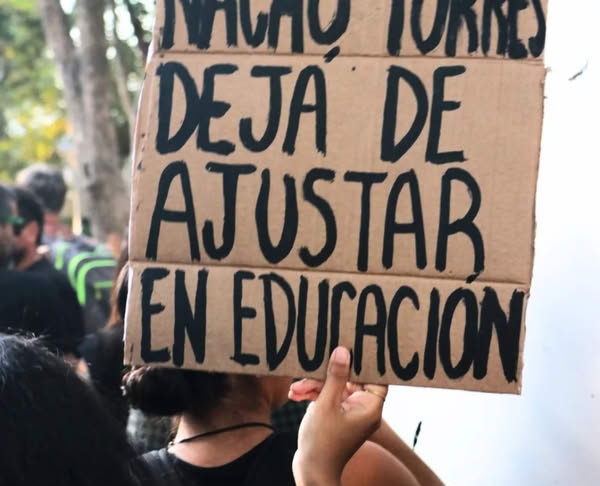 NACHO TORRES
DEJÁ DE
AJUSTAR
EN EDUCACIÓN